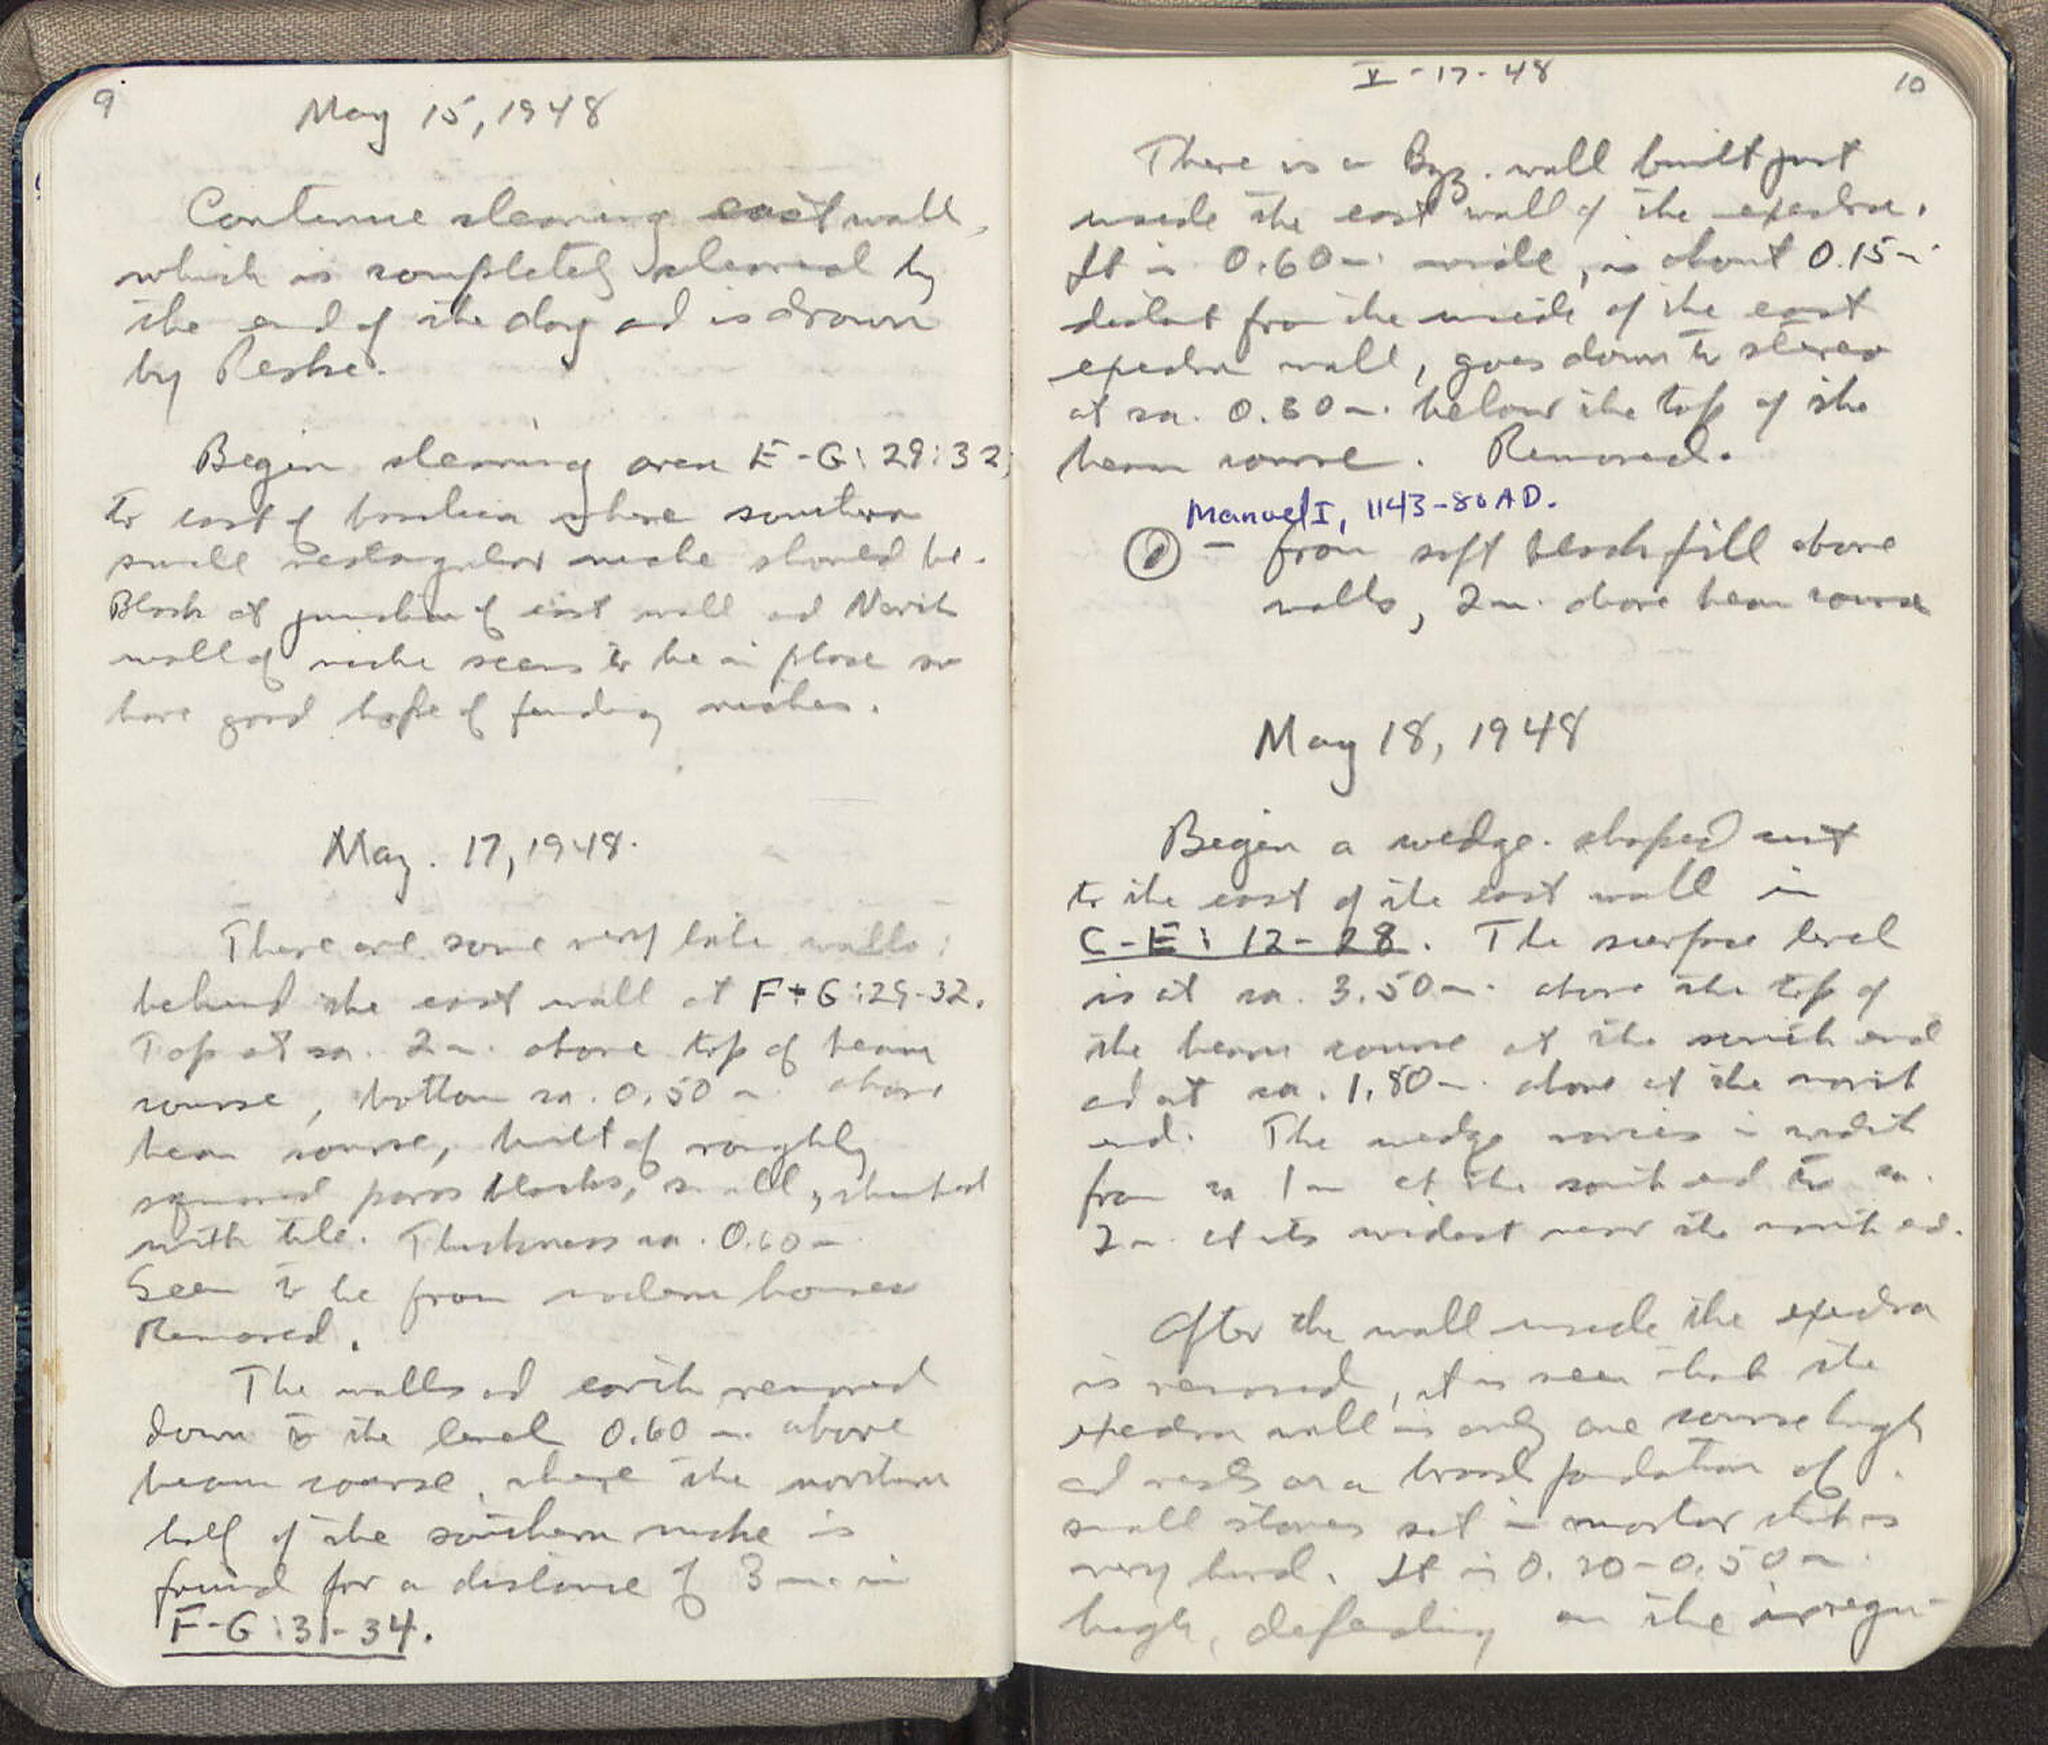 9
May 15, 1948
Continue clearing east wall,
which is completely cleared by
the end of the day and is drawn
by Peske.
Begin clearing area E-G:29:32,
to east of basilica where southern
small rectangular niche should be.
Block at junction of east wall and North
wall of niche seems to be in place so
have good hope of finding niches.
May. 17, 1948.
There are some very late walls
behind the east wall at F+G:29-32.
Top at ca. 2 m. above top of beam
course, bottom ca. 0.50 m. above
beam course, built of roughly
squared poros blocks, small, chinked
with tile. Thickness ca. 0.60 m
Seem to be from modern houses
Removed.
The walls and earth removed
down to the level 0.60 m. above
beam course, where the northern
half of the southern niche is
found for a distance of 3 m. in
F-G:31-34.
V-17-48
10
There is a Byz. wall built just
inside the east wall of the exedra.
It is 0.60 m. wide, is about 0.15 m.
distant from the inside of the east
exedra wall, goes down to stereo
at ca. 0.30 m. below the top of the
beam course. Removed.
Manuel I, 1143-80 AD.
① - from soft black fill above
walls, 2 m. above beam course
May 18, 1948
Begin a wedge-shaped cut
to the east of the east wall in
C-E: 12-28. The surface level
is at ca. 3.50 m. above the top of
the beam course at the south end
and at ca. 1.80 m. above at the north
end. The wedge varies in width
from ca 1 m at the south end to ca.
2 m. at its widest near the north end.
After the wall inside the exedra
is removed, it is seen that the
exedra wall is only one course high
and rests on a broad foundation of
small stones set in mortar that is
very hard. It is 0.20-0.50 m.
high, depending on the irregu-